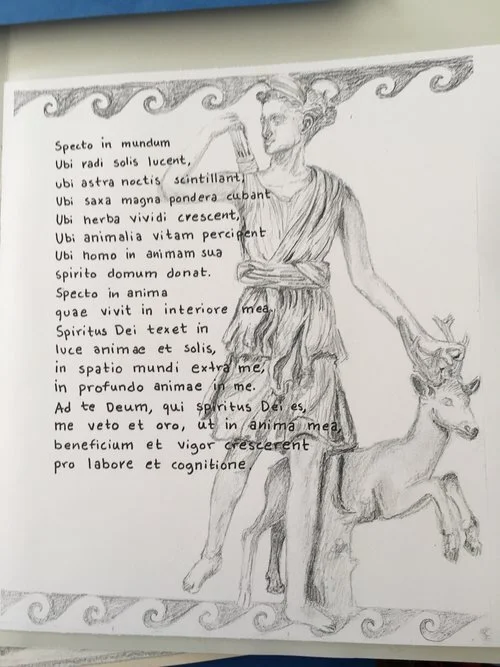 Specto in mundum
Ubi radi solis lucent,
ubi astra noctis scintillant,
Ubi saxa magna pondera cubant
Ubi herba vividi crescent,
Ubi animalia vitam percipent
Ubi homo in animam sua
spirito domum donat.
Specto in anima
quae vivit in interiore mea.
Spiritus Dei texet in
luce animae et solis,
in spatio mundi extra me,
in profundo animae in me.
Ad te Deum, qui spiritus Dei es,
me veto et oro, ut in anima mea,
beneficium et vigor crescerent
pro labore et cognitione